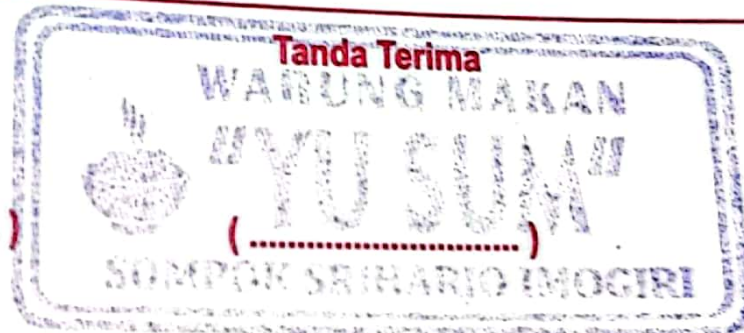 Tanda Terima
WARUNG MAKAN
"YU SUM"
) (..............................)
SOMPOK SRIHARJO IMOGIRI